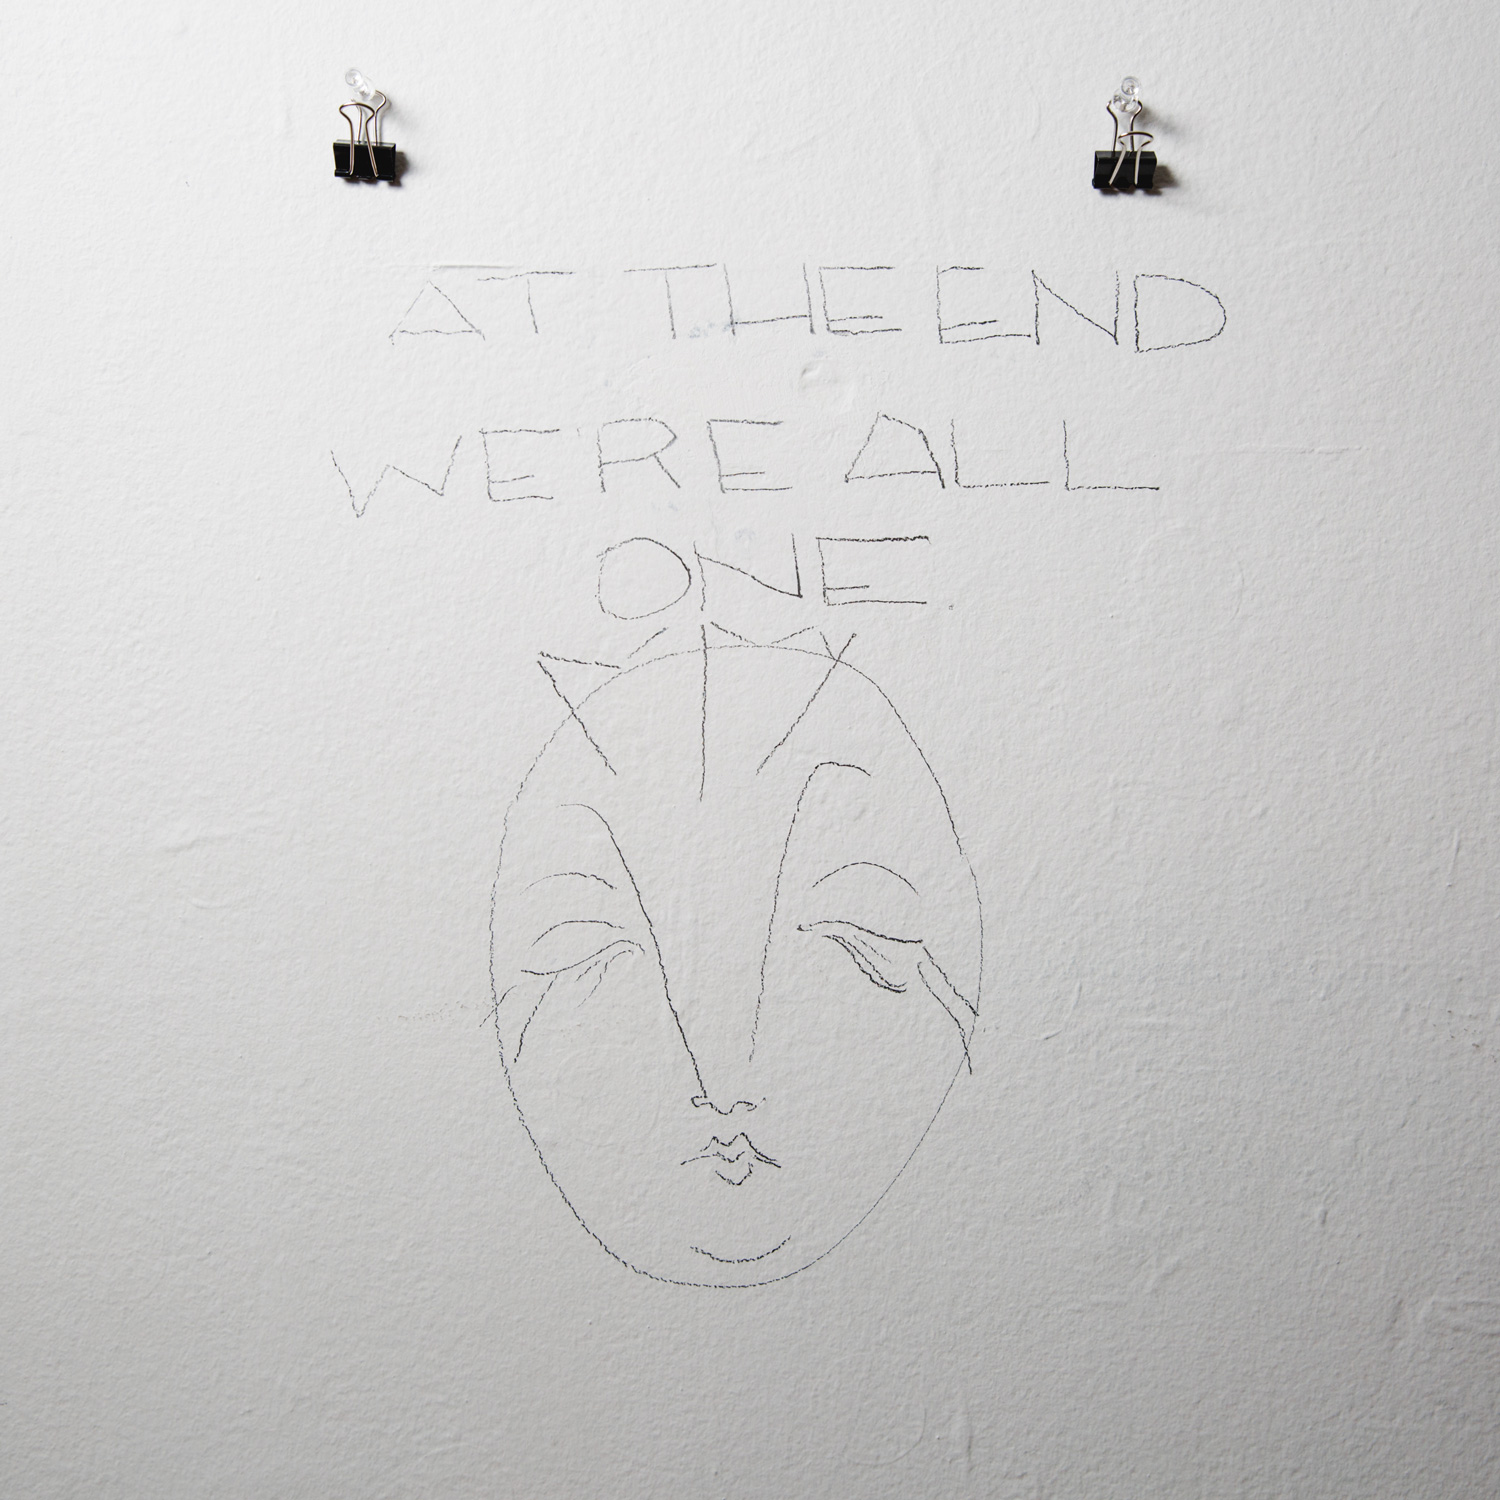 AT THE END
WE'RE ALL
ONE.